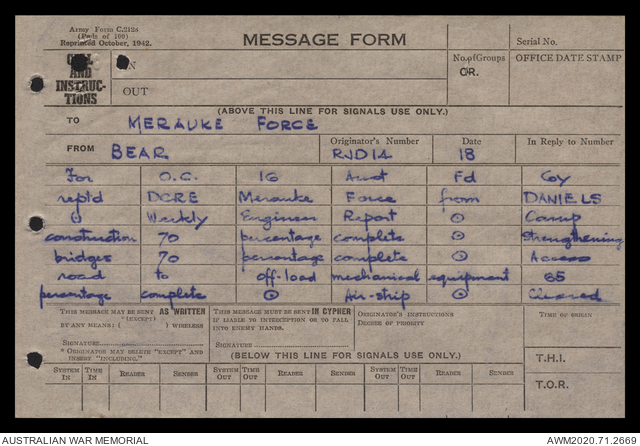 Army Form C.212a
(Pads of 100)
Reprinted October, 1942.
MESSAGE FORM
Serial No.
CALL AND INSTRUCTIONS
IN
OUT
No. of Groups
OR.
OFFICE DATE STAMP
(ABOVE THIS LINE FOR SIGNALS USE ONLY.)
TO MERAUKE FORCE
FROM BEAR
Originator's Number RJD14
Date 18
In Reply to Number
For O.C. 16 Aust Fd Coy
reptd DCRE Merauke Force from DANIELS
⊙ Weekly Engineer Report ⊙ Camp
construction 70 percentage complete ⊙ Strengthening
bridges 70 percentage complete ⊙ Access
road to off-load mechanical equipment 65
percentage complete ⊙ Air-strip ⊙ Cleared
THIS MESSAGE MAY BE SENT AS WRITTEN
(EXCEPT)
BY ANY MEANS: ( ) WIRELESS
SIGNATURE
* ORIGINATOR MAY DELETE "EXCEPT" AND INSERT "INCLUDING."
THIS MESSAGE MUST BE SENT IN CYPHER
IF LIABLE TO INTERCEPTION OR TO FALL INTO ENEMY HANDS.
SIGNATURE
ORIGINATOR'S INSTRUCTIONS
DEGREE OF PRIORITY
TIME OF ORIGIN
(BELOW THIS LINE FOR SIGNALS USE ONLY.)
T.H.I.
T.O.R.
SYSTEM IN TIME IN READER SENDER SYSTEM OUT TIME OUT READER SENDER SYSTEM OUT TIME OUT READER SENDER
AUSTRALIAN WAR MEMORIAL
AWM2020.71.2669